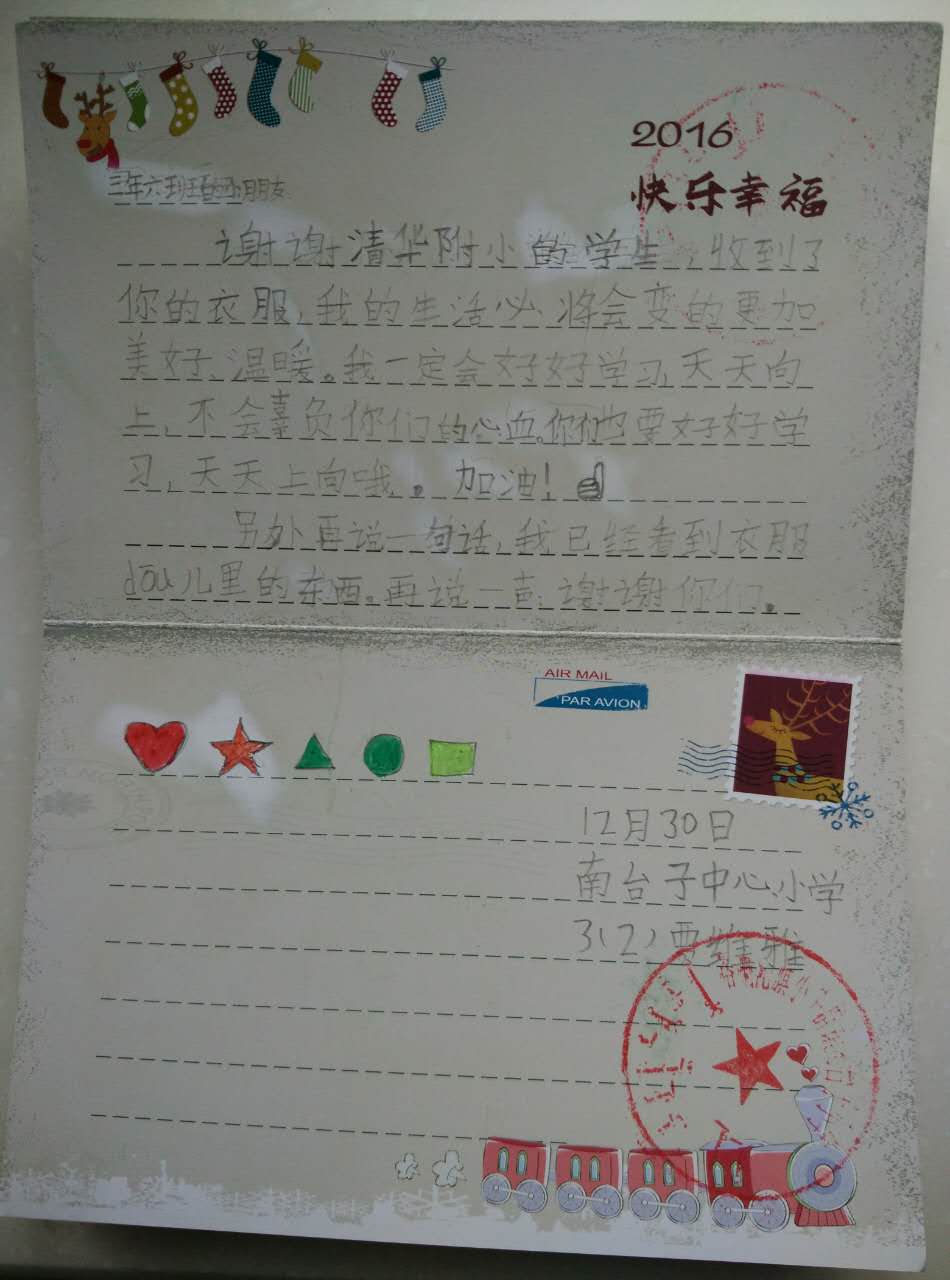 2016
快乐幸福
三年六班的小朋友
谢谢清华附小的学生,收到了
你的衣服,我的生活必将会变的更加
美好、温暖。我一定会好好学习,天天向
上,不会辜负你们的心血。你们也要好好学
习,天天上向哦。加油!
另外再说一句话,我已经看到衣服
dōu儿里的东西。再说一声,谢谢你们。
AIR MAIL
PAR AVION
12月30日
南台子中心小学
3(2)贾维雅